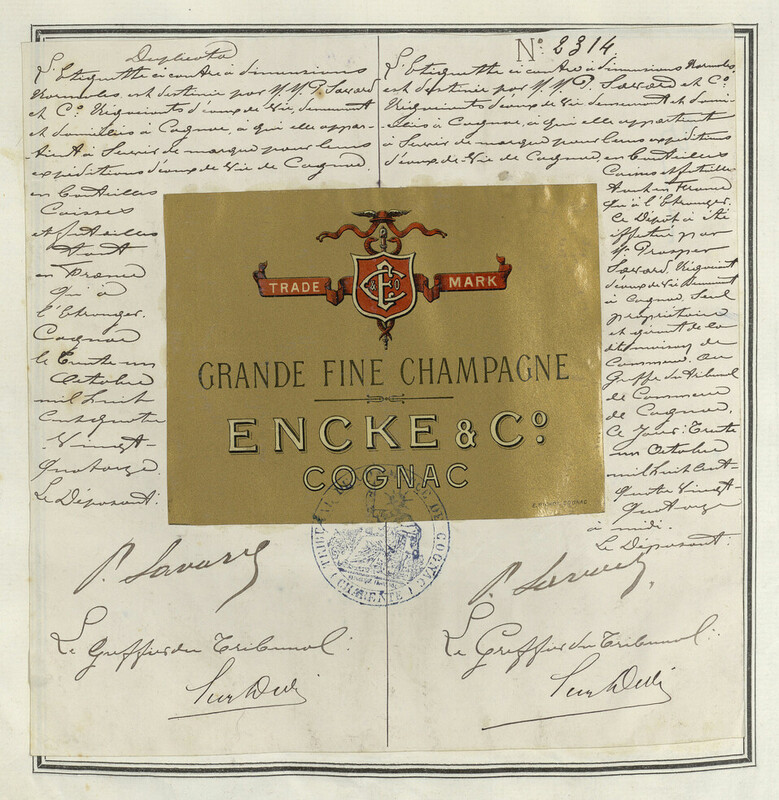 Duplicata
L'étiquette ci contre à dimensions
normales, est destinée par M.M. P. Savard
et Co. Négociants d'eaux de Vie, demeurant
et domiciliés à Cognac, à qui elle appar-
tient à Servir de marque pour leurs
expéditions d'eaux-de-Vie de Cognac,
en bouteilles
Caisses
et futailles
tant
en France
qu'à
l'étranger.
Cognac
le trente un
Octobre
mil huit
cent quatre
Vingt-
quatorze
Le Déposant:
P. Savard
Le Greffier du Tribunal:
No. 2314
L'étiquette ci contre à dimensions normales,
est destinée par M.M. P. Savard et Co.
Négociants d'eaux de Vie demeurant et domi-
ciliés à Cognac, à qui elle appartient
à Servir de marque pour leurs expéditions
d'eaux-de-Vie de Cognac, en bouteilles
Caisses et futailles
tant en France
qu'à l'étranger.
Ce Dépôt a été
effectué par
Mr. Prosper
Savard, Négociant
d'eaux de Vie demeurant
à Cognac, Seul
propriétaire
et gérant de la
dite maison de
Commerce. Au
Greffe du Tribunal
de Commerce
de Cognac,
Ce Jour: Trente
un Octobre
mil huit cent
quatre Vingt-
quatorze
à midi.
Le Déposant:
P. Savard
Le Greffier du Tribunal:
TRADE MARK
E & Co
GRANDE FINE CHAMPAGNE
ENCKE & Co
COGNAC
TRIBUNAL DE COMMERCE DE COGNAC
(CHARENTE)